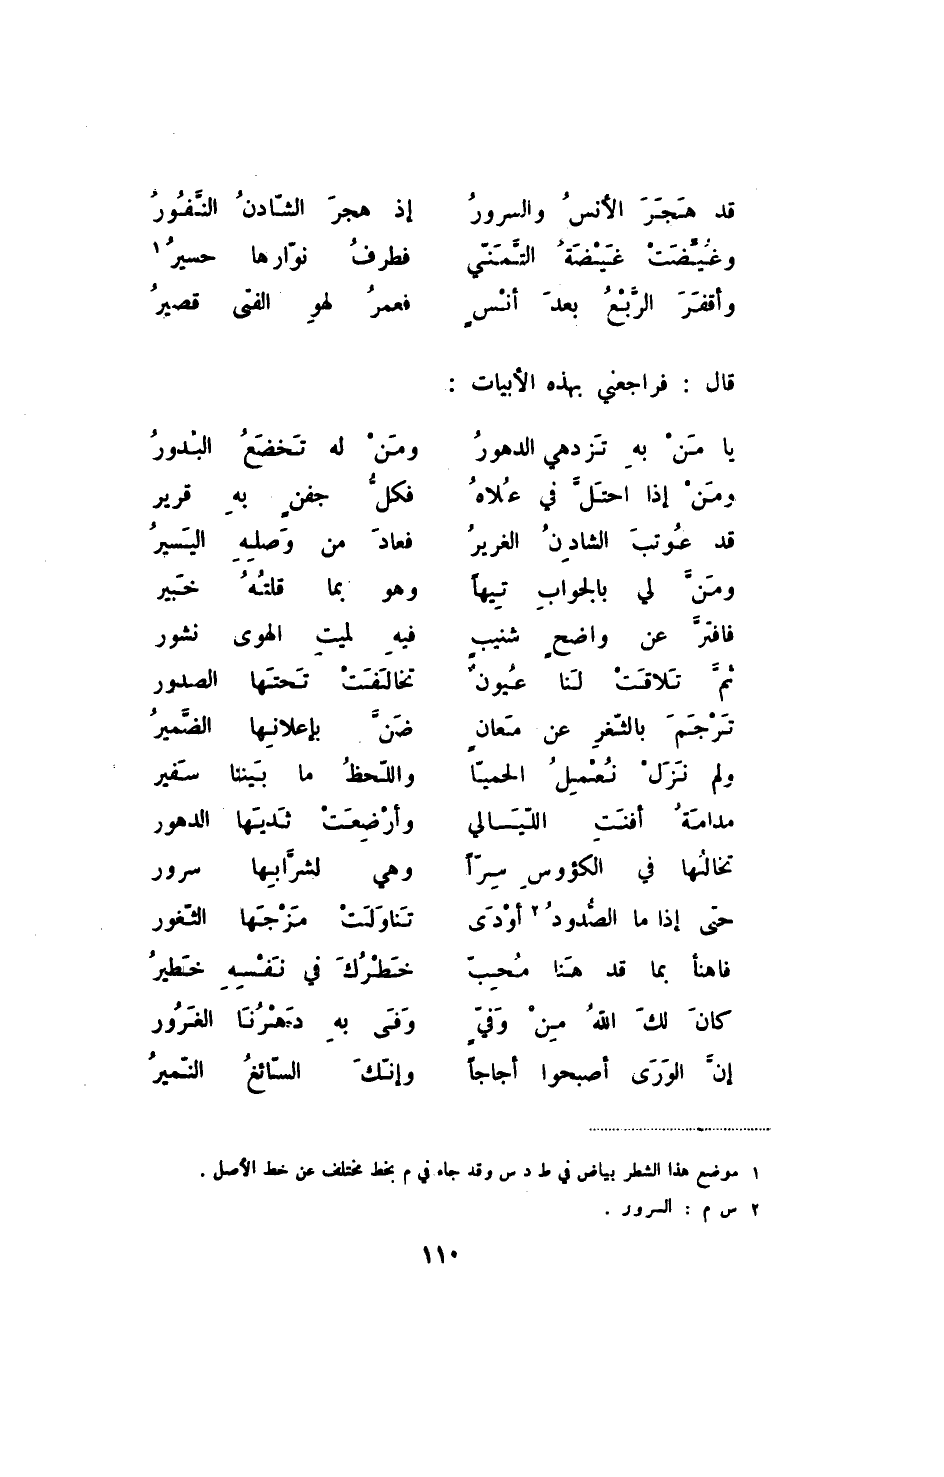 قد هَجَرَ الأنسُ والسرورُ إذ هجرَ الشّادنُ النَّفُورُ
وغُيِّضَتْ غَيْضَةُ التَّمَنّي فطرفُ نوّارها حسيرُ١
وأقفَرَ الرَّبْعُ بعدَ أنْسٍ فعمرُ لهوِ الفتى قصيرُ
قال : فراجعني بهذه الأبيات :
يا مَنْ بهِ تَزدهي الدهورُ ومَنْ له تَخضَعُ البُدورُ
ومَنْ إذا احتَلَّ في عُلاهُ فكلُّ جفنٍ بهِ قرير
قد عُوتبَ الشادِنُ الغريرُ فعادَ من وَصلِهِ اليَسيرُ
ومَنَّ لي بالجوابِ تِيهاً وهو بما قلتُهُ خَبير
فافترَّ عن واضحٍ شنيبٍ فيهِ لميتِ الهوى نشور
ثمَّ تَلاقَتْ لَنا عُيونٌ تخالَفَتْ تَحتَها الصدور
تَرْجَمَ بالثّغرِ عن مَعانٍ ضَنَّ بإعلانِها الضَّميرُ
ولم نَزَلْ نُعْمِلُ الحميّا واللّحظُ ما بَيننا سَفير
مدامَةُ أفنَتِ اللّيَالي وأرْضِعَتْ ثَديَها الدهور
تخالُها في الكؤوسِ سِرّاً وهي لشرَّابِها سرور
حتى إذا ما الصُّدودُ٢ أوْدَى تَناوَلَتْ مَزْجَها الثّغور
فاهنأ بما قد هَنا مُحِبّ خَطْرُكَ في نَفْسِهِ خَطيرُ
كانَ لكَ اللهُ مِنْ وَفيّ وَفَى بهِ دَهْرُنَا الغَرُور
إنَّ الوَرَى أصبحوا أجاجاً وإنّكَ السّائغُ النّميرُ
١ موضع هذا الشطر بياض في ط د س وقد جاء في م بخط مختلف عن خط الأصل .
٢ س م : السرور .
١١٠